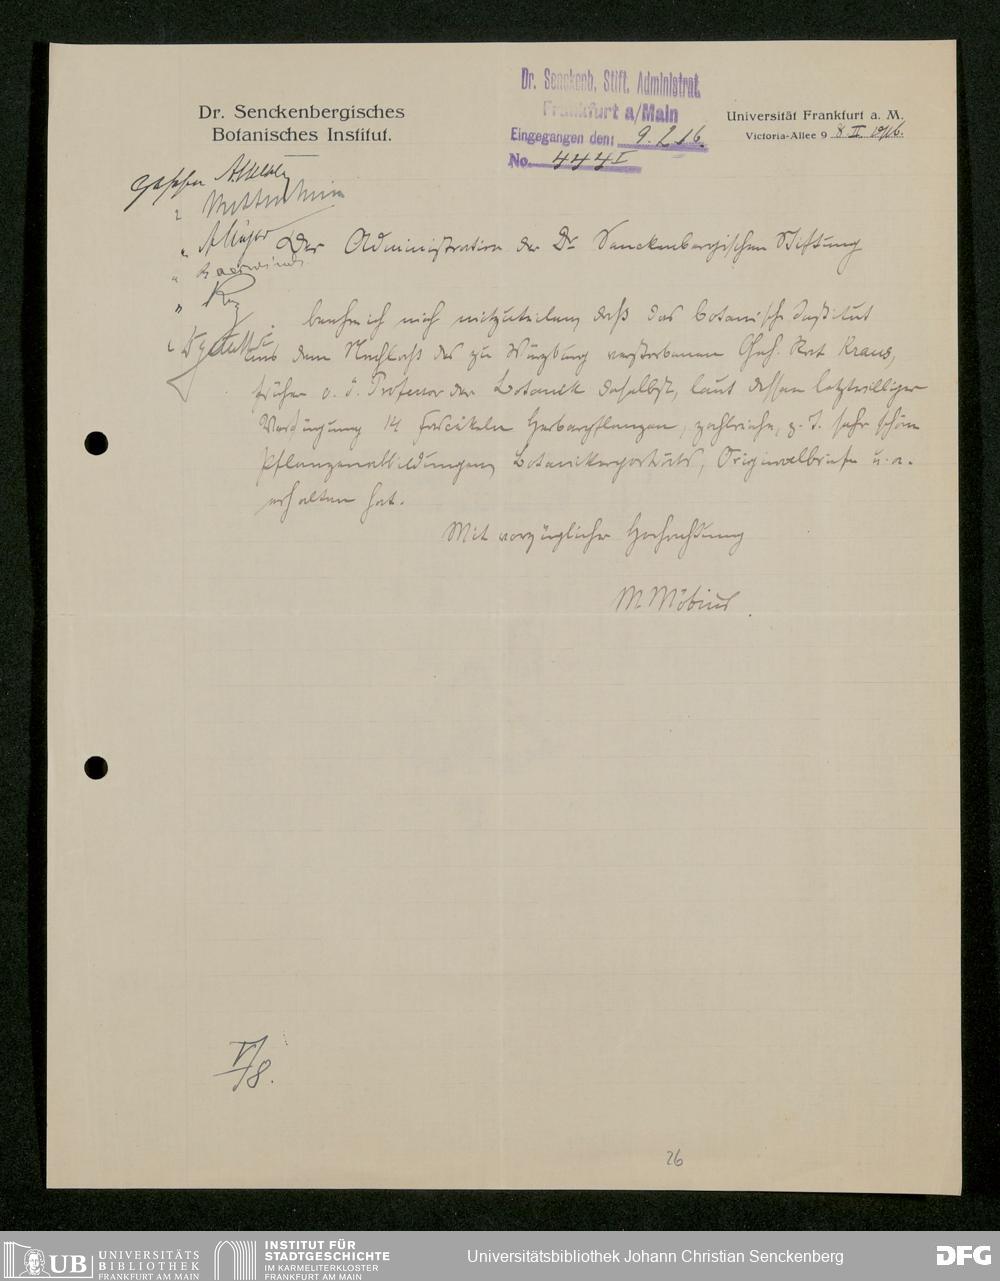 Dr. Senckenb. Stift. Administrat.
Frankfurt a/Main
Eingegangen den: 9.2.16.
No. 444 I
Dr. Senckenbergisches
Botanisches Institut.
Universität Frankfurt a. M.
Victoria-Allee 9 8. II. 1916.
gesehen
Der Administration der Dr. Senckenbergischen Stiftung
beehre ich mich mitzuteilen, daß das botanische Institut
aus dem Nachlaß des zu Würzburg verstorbenen Geh. Rat Kraus,
früher o. ö. Professor der Botanik daselbst, laut dessen letztwilliger
Verfügung 14 Fascikeln Herbarpflanzen, zahlreiche, z. T. sehr schöne
Pflanzenabbildungen, Botanikerporträts, Originalbriefe u. a.
erhalten hat.
Mit vorzüglicher Hochachtung
M. Möbius.
V/8.
26
UB UNIVERSITÄTS
BIBLIOTHEK
FRANKFURT AM MAIN
INSTITUT FÜR
STADTGESCHICHTE
IM KARMELITERKLOSTER
FRANKFURT AM MAIN
Universitätsbibliothek Johann Christian Senckenberg
DFG